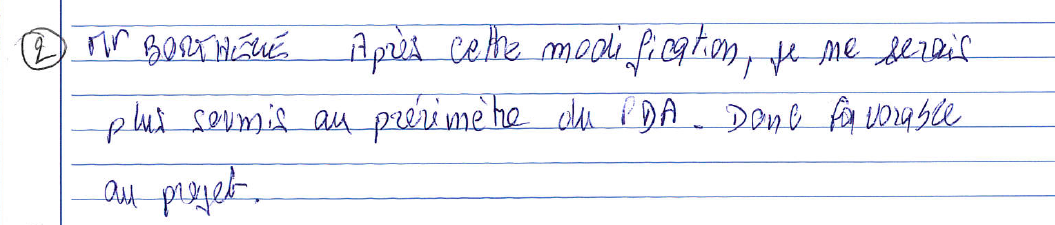 2 Mr BORTHÉLÉ Après cette modification, je ne serais
plus soumis au prérimètre du PDA. Donc favorable
au projet.